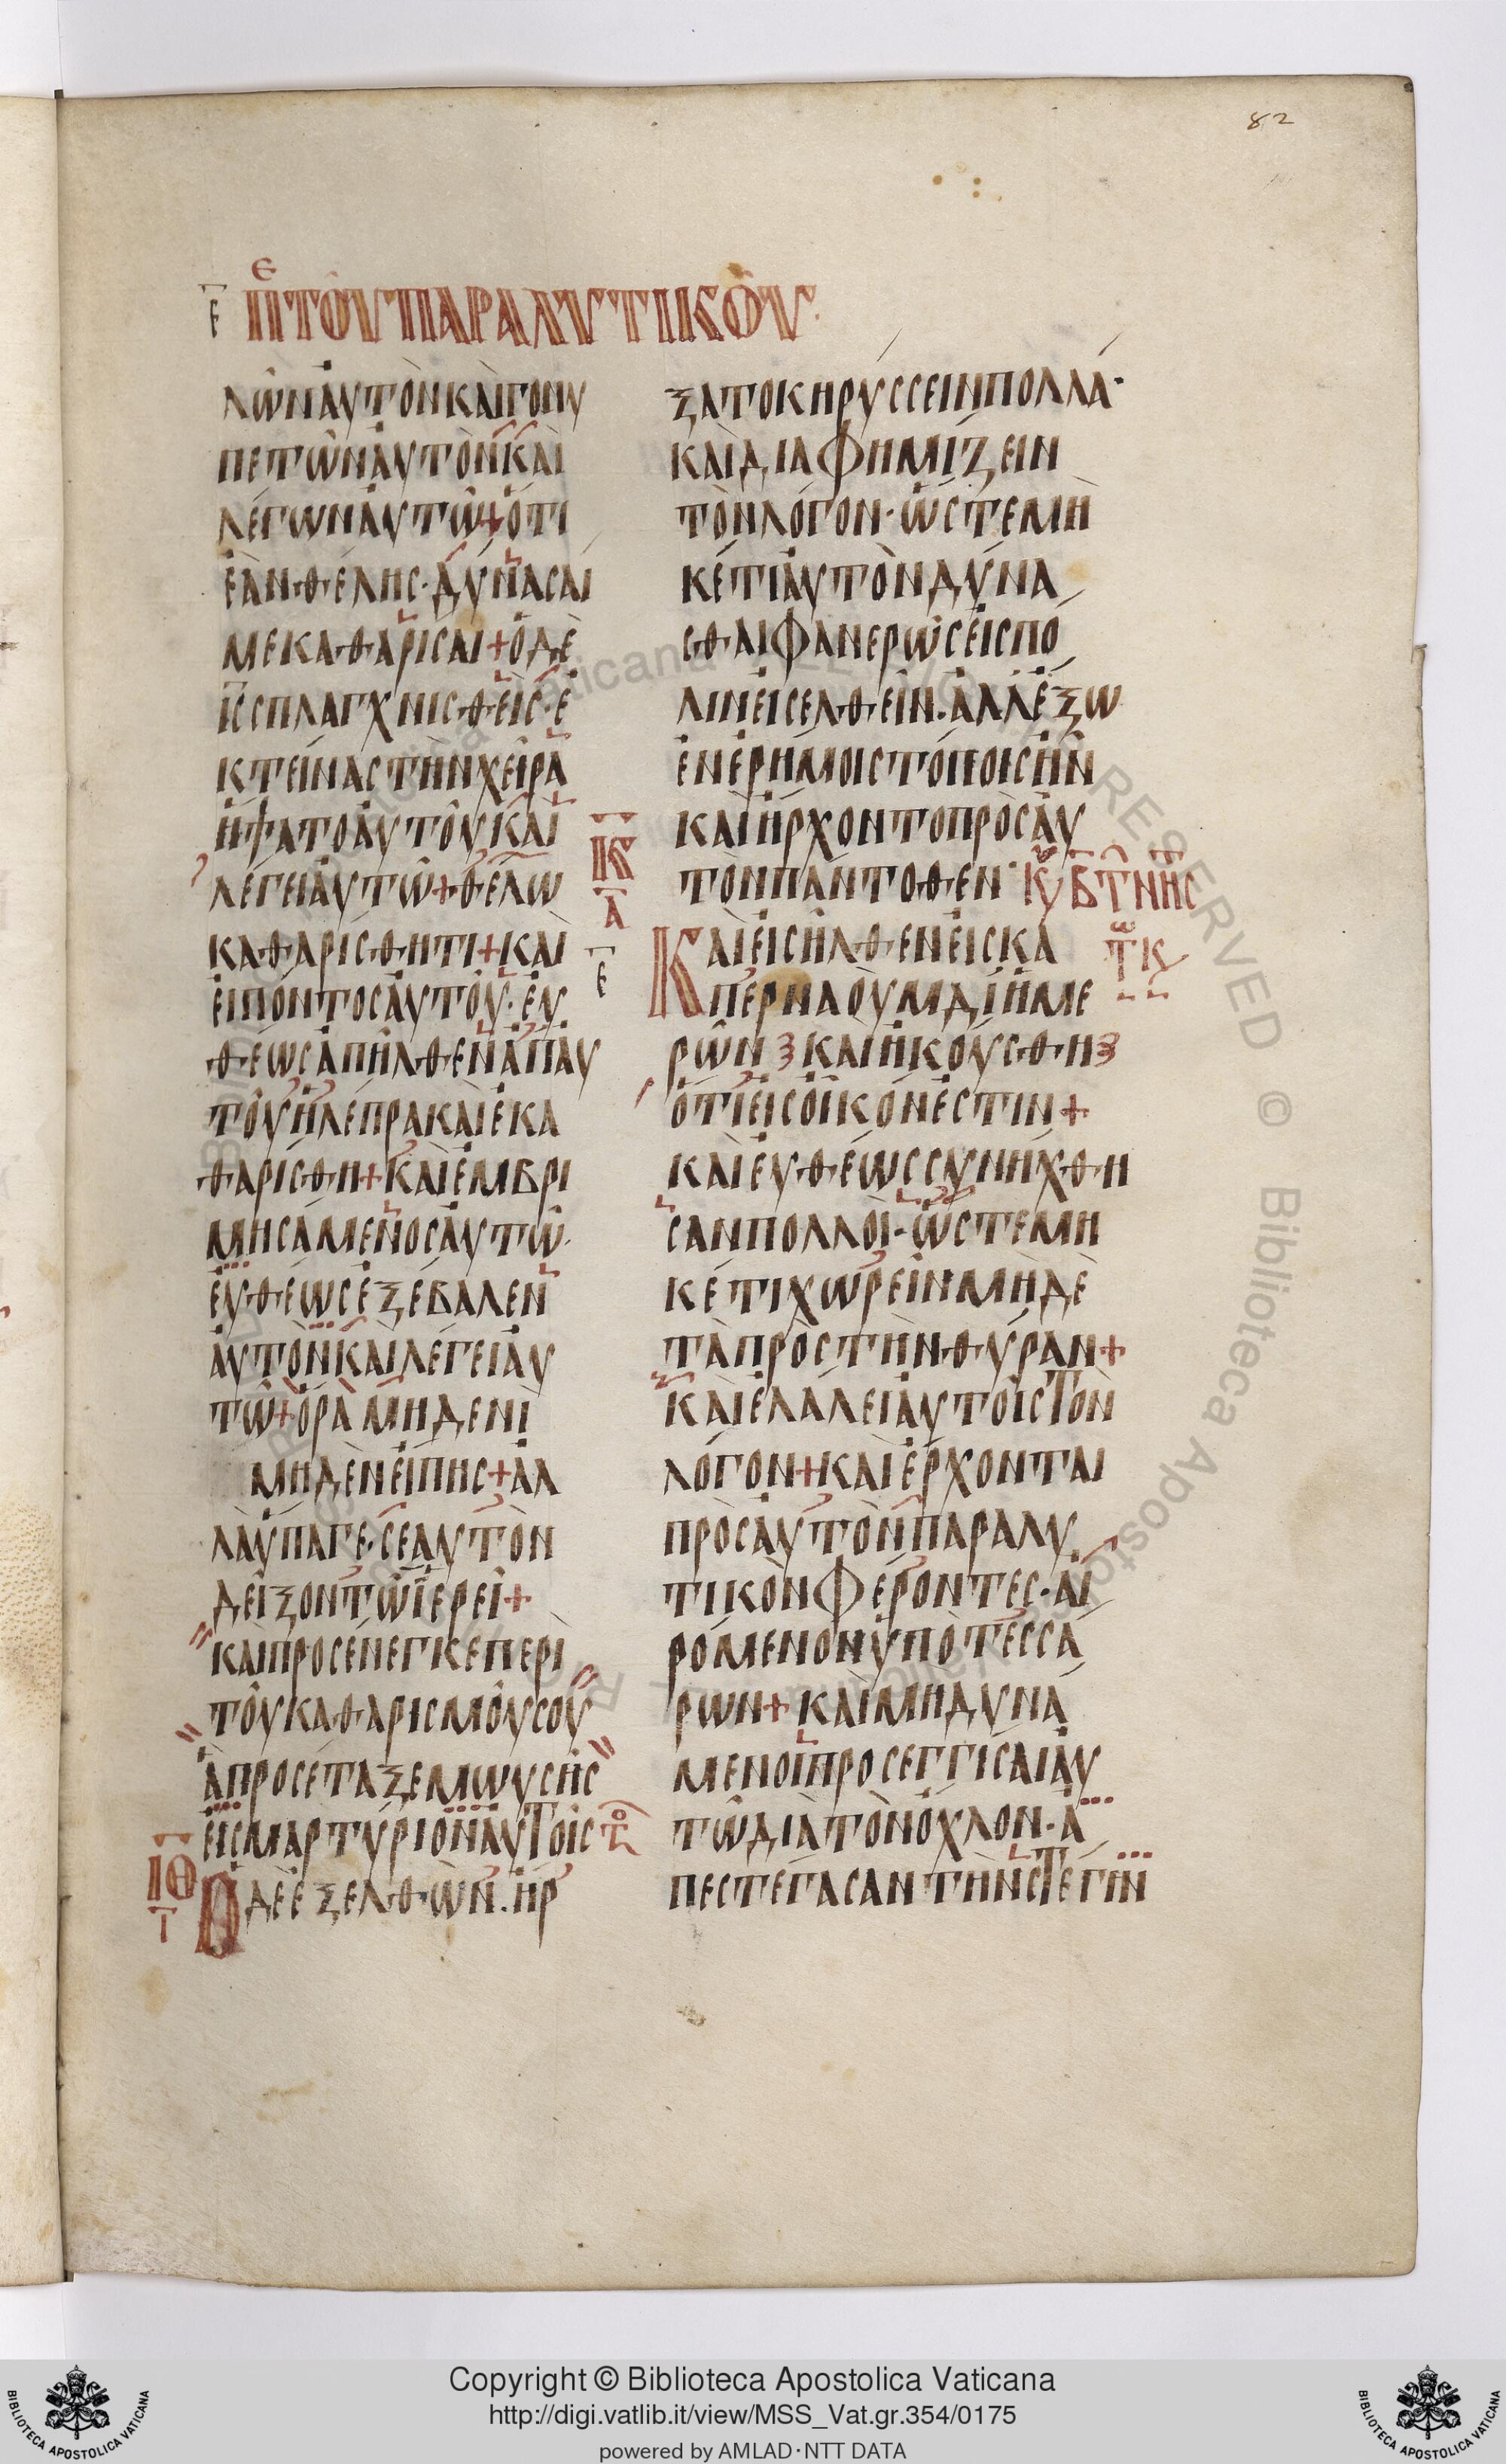 82
Ε ΠΕ ΤΟΥ ΠΑΡΑΛΥΤΙΚΟΥ
ΛΩΝΑΥΤΟΝΚΑΙΓΟΝΥ
ΠΕΤΩΝΑΥΤΟΝΚΑΙ
ΛΕΓΩΝΑΥΤΩ+ΟΤΙ
ΕΑΝΘΕΛΗΣ·ΔΥΝΑΣΑΙ
ΜΕΚΑΘΑΡΙΣΑΙ+ΟΔΕ
ΙΣΣΠΛΑΓΧΝΙΣΘΕΙΣ·Ε
ΚΤΕΙΝΑΣΤΗΝΧΕΙΡΑ
ΗΨΑΤΟΑΥΤΟΥΚΑΙ
ΛΕΓΕΙΑΥΤΩ+ΘΕΛΩ
ΚΑΘΑΡΙΣΘΗΤΙ+ΚΑΙ
ΕΙΠΟΝΤΟΣΑΥΤΟΥ·ΕΥ
ΘΕΩΣΑΠΗΛΘΕΝΑΠΑΥ
ΤΟΥΗΛΕΠΡΑΚΑΙΕΚΑ
ΘΑΡΙΣΘΗ+ΚΑΙΕΜΒΡΙ
ΜΗΣΑΜΕΝΟΣΑΥΤΩ·
ΕΥΘΕΩΣΕΞΕΒΑΛΕΝ
ΑΥΤΟΝΚΑΙΛΕΓΕΙΑΥ
ΤΩ+ΟΡΑΜΗΔΕΝΙ
ΜΗΔΕΝΕΙΠΗΣ+ΑΛ
ΛΑΥΠΑΓΕ·ΣΕΑΥΤΟΝ
ΔΕΙΞΟΝΤΩΪΕΡΕΙ+
ΚΑΙΠΡΟΣΕΝΕΓΚΕΠΕΡΙ
ΤΟΥΚΑΘΑΡΙΣΜΟΥΣΟΥ
ΑΠΡΟΣΕΤΑΞΕΜΩΥΣΗΣ
ΕΙΣΜΑΡΤΥΡΙΟΝΑΥΤΟΙΣ
ΙΘ Τ
ΟΔΕΕΞΕΛΘΩΝ.ΗΡ
ΞΑΤΟΚΗΡΥΣΣΕΙΝΠΟΛΛΑ·
ΚΑΙΔΙΑΦΗΜΙΖΕΙΝ
ΤΟΝΛΟΓΟΝ·ΩΣΤΕΜΗ
ΚΕΤΙΑΥΤΟΝΔΥΝΑ
ΣΘΑΙΦΑΝΕΡΩΣΕΙΣΠΟ
ΛΙΝΕΙΣΕΛΘΕΙΝ.ΑΛΛΕΞΩ
ΕΝΕΡΗΜΟΙΣΤΟΠΟΙΣΗΝ
ΚΑΙΗΡΧΟΝΤΟΠΡΟΣΑΥ
ΤΟΝΠΑΝΤΟΘΕΝ·ΚΥΒΤΝΗΣ
Κ Α Ε
ΚΑΙΕΙΣΗΛΘΕΝΕΙΣΚΑ
ΠΕΡΝΑΟΥΜΔΙΗΜΕ
ΡΩΝΚΑΙΗΚΟΥΣΘΗ
ΟΤΙΕΙΣΟΙΚΟΝΕΣΤΙΝ+
ΚΑΙΕΥΘΕΩΣΣΥΝΗΧΘΗ
ΣΑΝΠΟΛΛΟΙ·ΩΣΤΕΜΗ
ΚΕΤΙΧΩΡΕΙΝΜΗΔΕ
ΤΑΠΡΟΣΤΗΝΘΥΡΑΝ+
ΚΑΙΕΛΑΛΕΙΑΥΤΟΙΣΤΟΝ
ΛΟΓΟΝ+ΚΑΙΕΡΧΟΝΤΑΙ
ΠΡΟΣΑΥΤΟΝΠΑΡΑΛΥ
ΤΙΚΟΝΦΕΡΟΝΤΕΣ·ΑΙ
ΡΟΜΕΝΟΝΥΠΟΤΕΣΣΑ
ΡΩΝ+ΚΑΙΜΗΔΥΝΑ
ΜΕΝΟΙΠΡΟΣΕΓΓΙΣΑΙΑΥ
ΤΩΔΙΑΤΟΝΟΧΛΟΝ·Α
ΠΕΣΤΕΓΑΣΑΝΤΗΝΣΤΕΓΗΝ
Copyright © Biblioteca Apostolica Vaticana
http://digi.vatlib.it/view/MSS_Vat.gr.354/0175
powered by AMLAD·NTT DATA
BIBLIOTECA APOSTOLICA VATICANA
BIBLIOTECA APOSTOLICA VATICANA